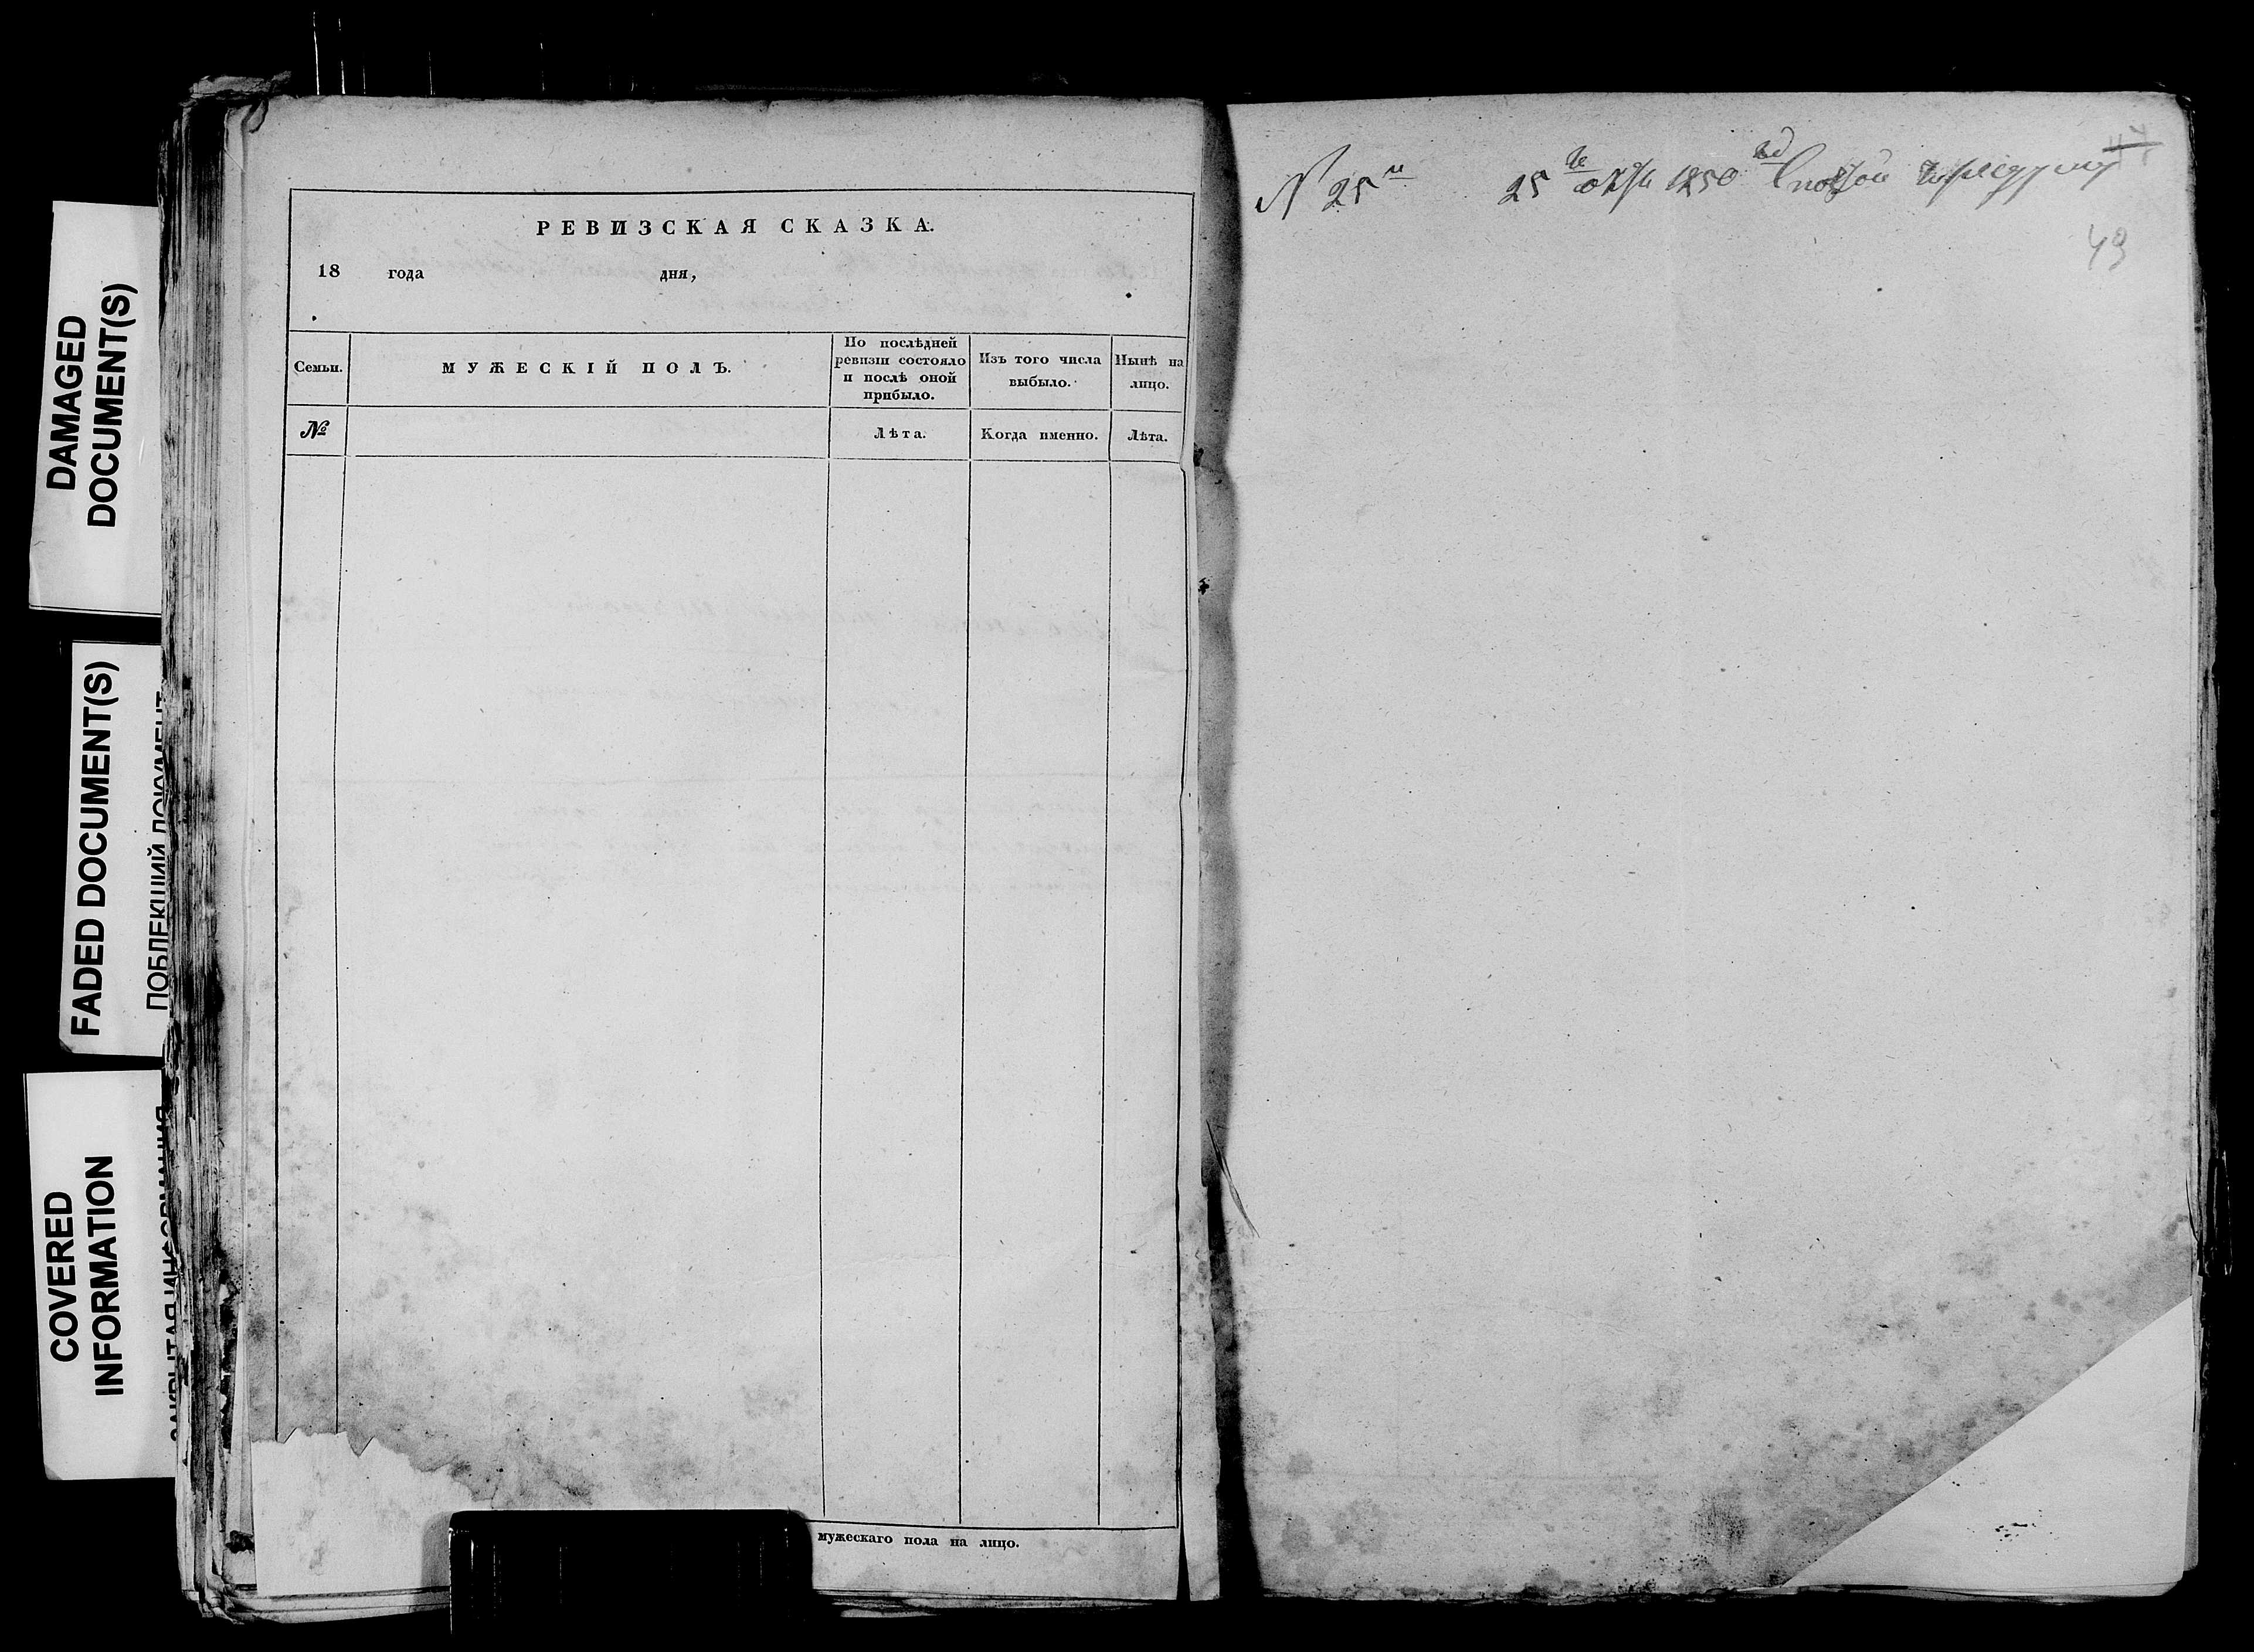 DAMAGED
DOCUMENT(S)
FADED DOCUMENT(S)
ПОБЛЕКШИЙ ДОКУМЕНТ
COVERED
INFORMATION
ЗАКРЫТАЯ ИНФОРМАЦИЯ
РЕВИЗСКАЯ СКАЗКА.
18 года дня,
Семьи.
МУЖЕСКІЙ ПОЛЪ.
По послѣдней
ревизіи состояло
и послѣ оной
прибыло.
Изъ того числа
выбыло.
Нынѣ на
лицо.
№
Лѣта.
Когда именно.
Лѣта.
мужескаго пола на лицо.
N 25
25 1850
49